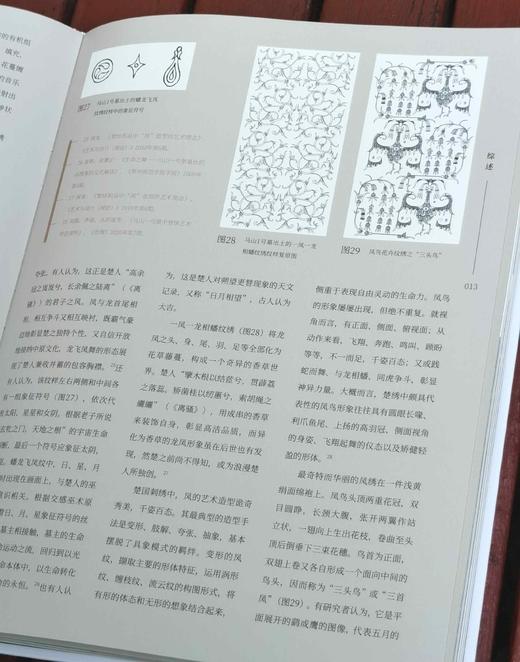 的有机组
填充，
花蔓缠
的音乐
射出
种状
绣
图27
马山1号墓出土的蟠龙飞凤
纹绣纹样中的象征符号
图28
马山1号墓出土的一凤一龙
相蟠纹绣纹样复原图
图29
凤鸟花卉纹绣之“三头鸟”
综述
013
夸张。有人认为，这正是楚人“高余
冠之岌岌兮，长余佩之陆离”（《离
骚》）的君子之风。凤与龙首尾相
相互争斗又相互映衬，既霸气豪
边地彰显楚之独特个性，又自信开放
地接纳中原文化，龙飞凤舞的形态展
现了楚人兼收并蓄的包容胸襟。
有人认为，该纹样左右两侧和中间各
有一组象征符号（图27），依次代
太阳、星星和女阴，根据老子所说
玄牝之门，天地之根”的宇宙生命
最后一个符号应象征太阴，
蟠龙飞凤纹中，日、星、月
时出现在画面上，与楚人的巫
意识相关。根据交感巫术原
日、月、星象征符号的丝
墓主相接触，墓主的生命
运动之流，回归到以光
命本体中，以生命转化
的永恒。26也有人认
为，这是楚人对朔望更替现象的天文
记录，又称“日月相望”，占人认为
大吉。
一凤一龙相蟠纹绣（图28）将龙
凤之头、身、尾、羽、足等全部化为
花草藤蔓，构成一个奇异的香草世
界。楚人“擥木根以结茝兮，贯薜荔
之落蕊。矫菌桂以纫蕙兮，索胡绳之
纚纚”（《离骚》），用成串的香草
来装饰自身，彰显高洁品质，而异
化为香草的龙凤形象虽在后世也有发
现，然楚之前尚不得知，或为浪漫楚
人所独创。27
楚国刺绣中，凤的艺术造型诡奇
秀美，千姿百态。其最典型的造型手
法是变形、肢解、夸张、抽象，基本
摆脱了具象模式的羁绊。变形的凤
纹，撷取主要的形体特征，运用涡形
纹、缠枝纹、流云纹的构图形式，将
有形的体态和无形的想象结合起来，
侧重于表现自由灵动的生命力。凤鸟
的形象屡屡出现，但绝不重复。就视
角而言，有正面、侧面、俯视面；从
动作来看，飞翔、奔跑、鸣叫、顾盼
等等，不一而足，千姿百态；又或践
蛇而舞、与龙相蟠、同虎争斗，彰显
神异力量。大概而言，楚绣中颇具代
表性的凤鸟形象往往具有圆眼长喙、
利爪鱼尾、上扬的高羽冠、侧面视角
的身姿、飞翔起舞的仪态以及矫健轻
盈的形体。28
最奇特而华丽的凤绣在一件浅黄
绢面绵袍上。凤鸟头顶两重花冠，双
目圆睁，长颈大腹，张开两翼作站
立状，一翅向上生出花枝，卷曲至头
顶后倒垂下三束花穗。鸟首为正面，
双翅上卷又各自形成一个面向中间的
鸟头，因而称为“三头鸟”或“三首
凤”（图29）。有研究者认为，它是平
面展开的鹞或鹰的图像，代表五月的